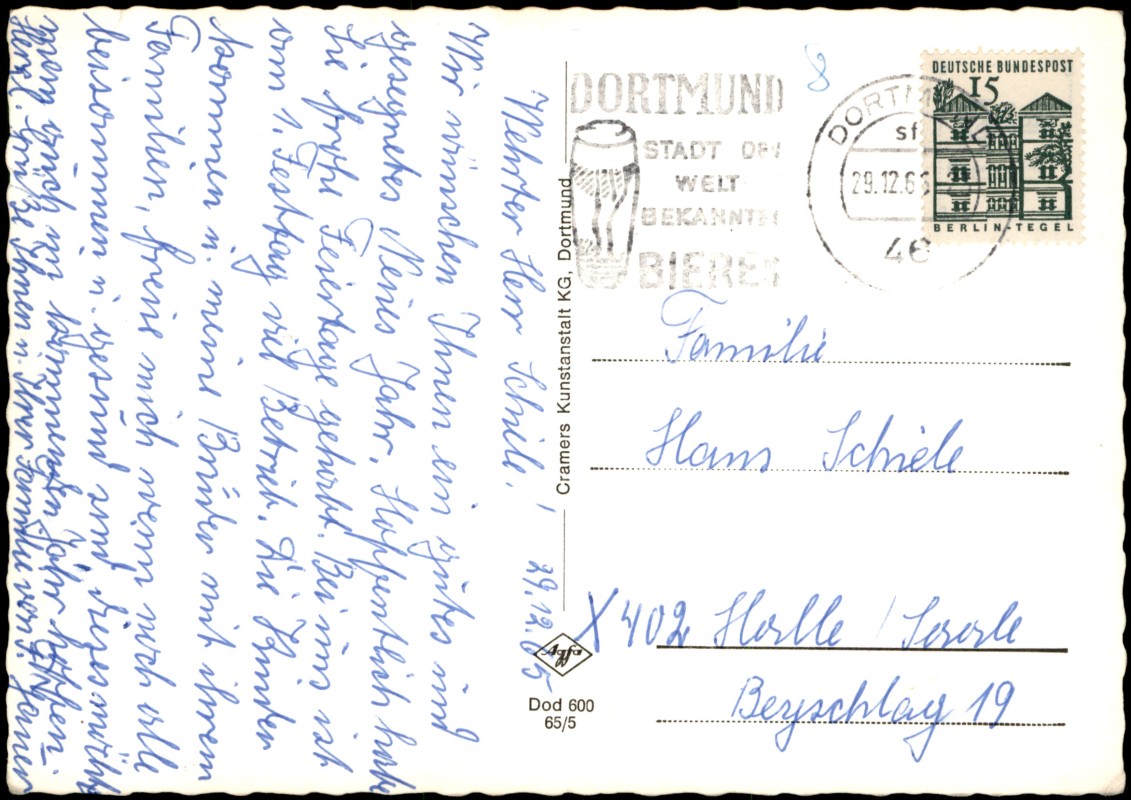 29.12.65
Werter Herr Schiele!
Wir wünschen Ihnen ein gutes und
gesegnetes Neues Jahr. Hoffentlich habt
Sie frohe Feiertage gehabt. Bei uns ist
vom 1. Festtag viel Betrieb. Die Kinder
kommen u. meine Brüder mit ihrem
Familien, freue mich wenn noch alle
beisammen u. gesund sind dieses möchte
mich im kommenden Jahr
Herzl. Grüße Ihnen u. Ihrer Familie von
Cramers Kunstanstalt KG, Dortmund
Agfa
Dod 600
65/5
DORTMUND
STADT DER
WELT
BEKANNTEN
BIERES
8
DORTMUND
sf
29.12.65
46
DEUTSCHE BUNDESPOST
15
BERLIN-TEGEL
Familie
Hans Schiele
X 402 Halle / Saale
Beyschlag 19